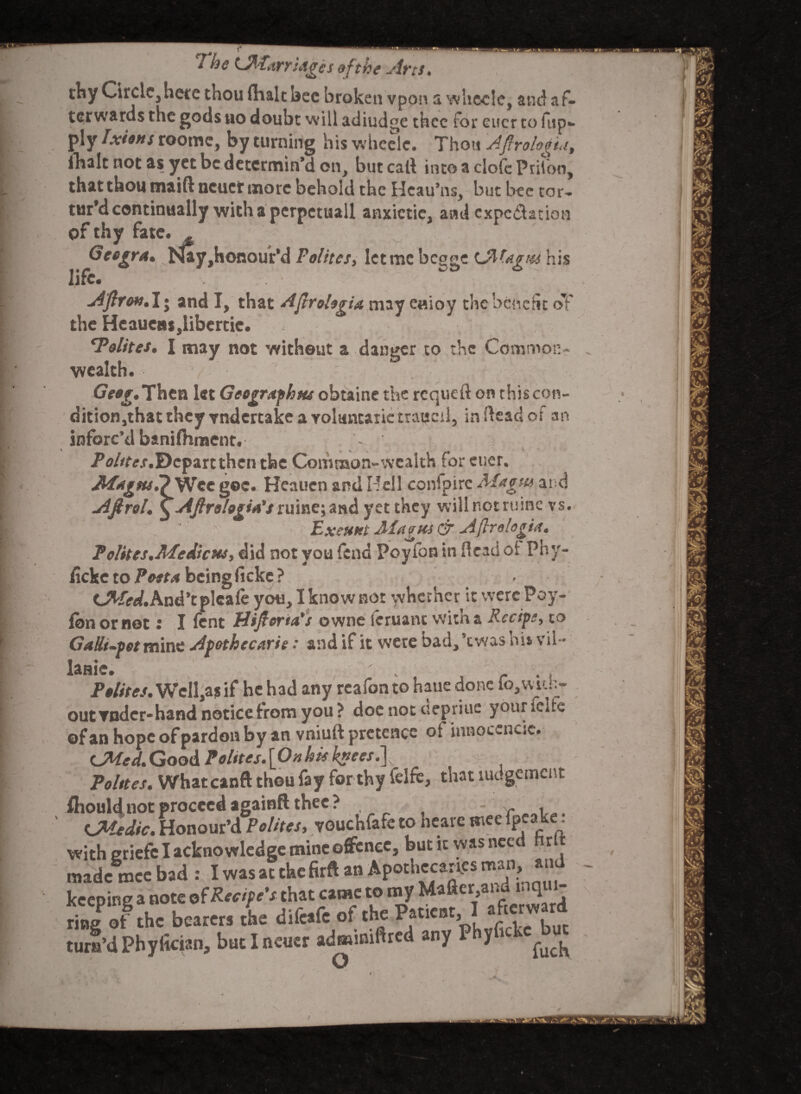 The Marriages of the Arts.
thy Circle, here thou ſhalt bee broken vpon a wheele, and af-
terwards the gods no doubt will adiudge thee for euer to ſup-
ply Ixions roome, by turning his wheele. Thou Aſtrologia,
ſhalt not as yet be determin'd on, but caſt into a cloſe Priſon,
that thou maiſt neuer more behold the Heau'ns, but bee tor-
tur'd continually with a perpetuall anxietie, and expectation
of thy fate.
Geogra. Nay, honour'd Polites, let me begge Magus his
life.
Aſtron. I; and I, that Aſtrologia may enioy the benefit of
the Heauens, libertie.
Polites. I may not without a danger to the Common-
wealth.
Geog. Then let Geographus obtaine the requeſt on this con-
dition, that they vndertake a voluntarie trauell, in ſtead of an
inforc'd baniſhment.
Polites. Depart then the Common-wealth for euer.
Magus. } Wee goe. Heauen and Hell conſpire Magus and
Aſtrol. } Aſtrologia's ruine; and yet they will not ruine vs.
Exeunt Magus & Aſtrologia.
Polites. Medicus, did not you ſend Poyſon in ſtead of Phy-
ſicke to Poeta being ſicke?
Med. And't pleaſe you, I know not whether it were Poy-
ſon or not: I ſent Hiſtoria's owne ſeruant with a Recipe, to
Galli-pot mine Apothecarie: and if it were bad, 'twas his vil-
lanie.
Polites. Well, as if he had any reaſon to haue done ſo, with-
out vnder-hand notice from you? doe not depriue your ſelfe
of an hope of pardon by an vniuſt pretence of innocencie.
Med. Good Polites. [On his knees.]
Polites. What canſt thou ſay for thy ſelfe, that iudgement
ſhould not proceed againſt thee?
Medic. Honour'd Polites, vouchſafe to heare mee ſpeake:
with griefe I acknowledge mine offence, but it was need firſt
made mee bad: I was at the firſt an Apothecaries man, and
keeping a note of Recipe's that came to my Maſter, and inqui-
ring of the bearers the diſeaſe of the Patient, I afterward
turn'd Phyſician, but I neuer adminiſtred any Phyſicke but
O ſuch